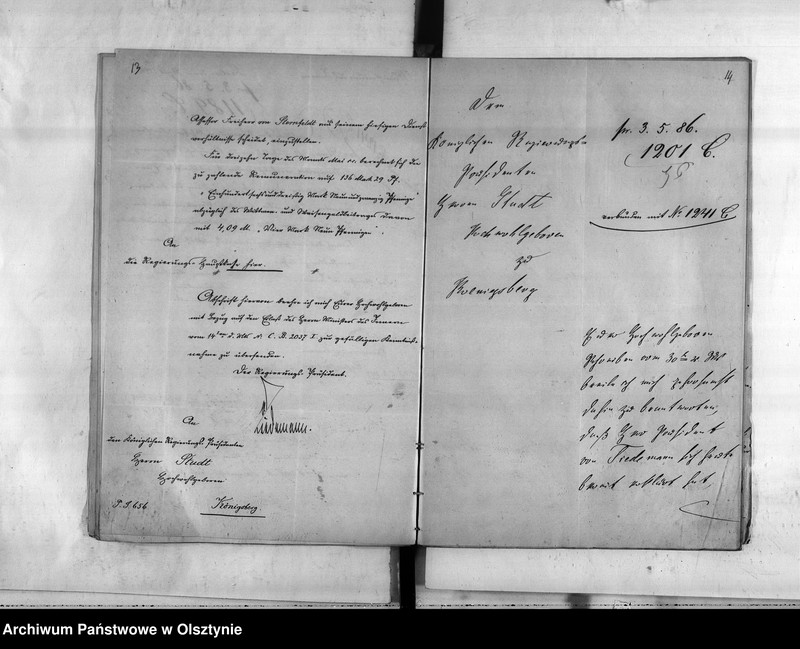 13
Assessor Freiherr von Sternfeldt aus seinem hiesigen Dienst-
verhältnisse scheidet, einzustellen.
Für dreizehn Tage des Monats Mai cr. berechnet sich die
zu zahlende Remuneration auf 136 Mark 29 Pf.
"Einhundertsechsunddreißig Mark Neunundzwanzig Pfennige"
abzüglich des Wittwen- und Waisengeldbeitrages davon
mit 4,09 M. "Vier Mark Neun Pfennige".
An
die Regierungs-Hauptkasse hier.
Abschrift hiervon beehre ich mich Eurer Hochwohlgeboren
mit Bezug auf den Erlaß des Herrn Ministers des Innern
vom 14ten d. Mts. C. B. 2037 I zur gefälligen Kenntniß-
nahme zu übersenden.
Der Regierungs-Präsident.
An
den Königlichen Regierungs-Präsidenten
Herrn Studt
Hochwohlgeboren
P. J. 656
Königsberg
14
Dem
Königlichen Regierungs-
Präsidenten
Herrn Studt
Hochwohlgeboren
zu
Koenigsberg
pr. 3. 5. 86.
1201 C.
verbunden mit No 1241 C
Euer Hochwohlgeboren
Schreiben vom 30ten v. Mts.
beeile ich mich gehorsamst
dahin zu beantworten,
daß Herr Präsident
von Tiedemann sich heute
bereit erklärt hat
Archiwum Państwowe w Olsztynie